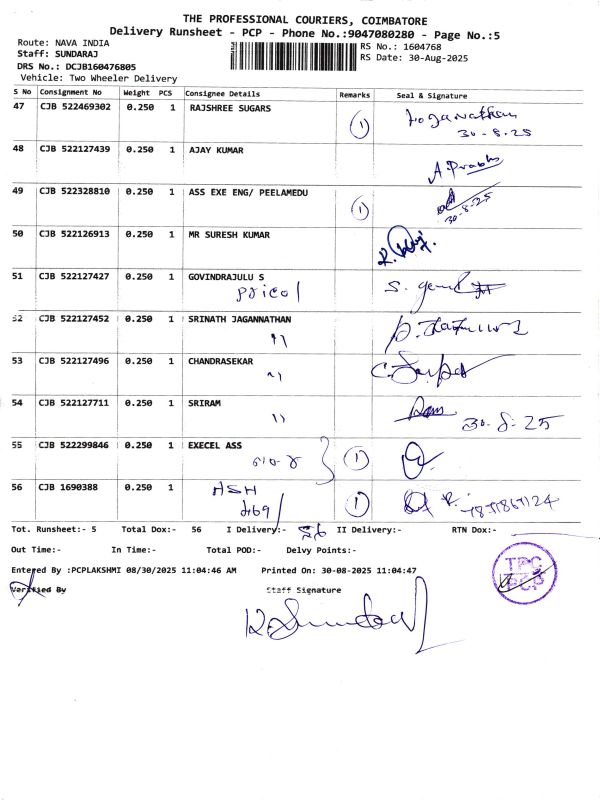 THE PROFESSIONAL COURIERS, COIMBATORE
Delivery Runsheet - PCP - Phone No.:9047080280 - Page No.:5
Route: NAVA INDIA
Staff: SUNDARAJ
DRS No.: DCJB160476805
Vehicle: Two Wheeler Delivery
RS No.: 1604768
RS Date: 30-Aug-2025
S No Consignment No Weight PCS Consignee Details Remarks Seal & Signature
47 CJB 522469302 0.250 1 RAJSHREE SUGARS 1
30-8-25
48 CJB 522127439 0.250 1 AJAY KUMAR
A. Prabhu
49 CJB 522328810 0.250 1 ASS EXE ENG/ PEELAMEDU 1
30-8-25
50 CJB 522126913 0.250 1 MR SURESH KUMAR
51 CJB 522127427 0.250 1 GOVINDRAJULU S
pricol
52 CJB 522127452 0.250 1 SRINATH JAGANNATHAN
"
53 CJB 522127496 0.250 1 CHANDRASEKAR
"
54 CJB 522127711 0.250 1 SRIRAM
" 30-8-25
55 CJB 522299846 0.250 1 EXECEL ASS 1
56 CJB 1690388 0.250 1 HSH 1
Tot. Runsheet:- 5 Total Dox:- 56 I Delivery:- 56 II Delivery:- RTN Dox:-
Out Time:- In Time:- Total POD:- Delvy Points:-
Entered By :PCPLAKSHMI 08/30/2025 11:04:46 AM Printed On: 30-08-2025 11:04:47
Verified By Staff Signature
TPC
PCP